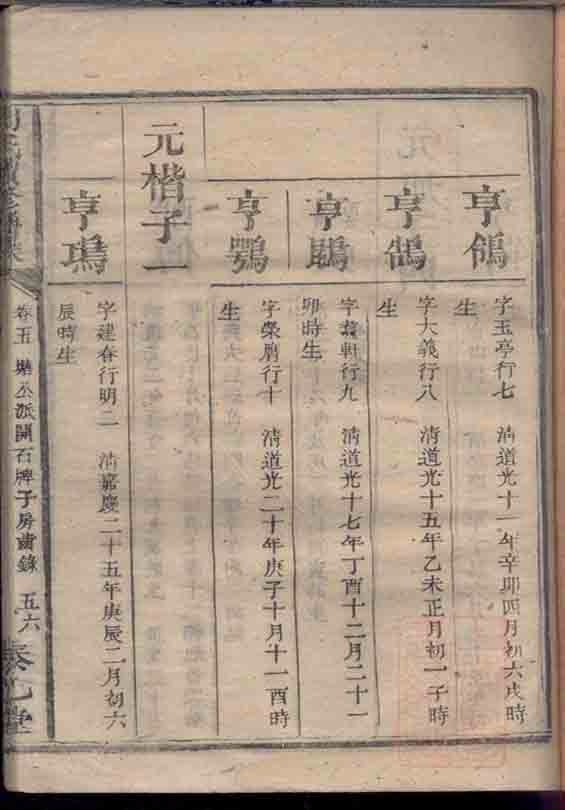 亨鴿
字玉亭行七　清道光十一年辛卯四月初六戌時
生
亨鵠
字大義行八　清道光十五年乙未正月初一子時
生
亨鵰
字 軒行九　清道光十七年丁酉十二月二十一
卯時生
亨鶚
字榮膺行十　清道光二十年庚子十月十一酉時
生
元楷子一
亨鳿
字建春行明二　清嘉慶二十五年庚辰二月初六
辰時生
卷五 公派開石牌子房齒錄 五六
堂